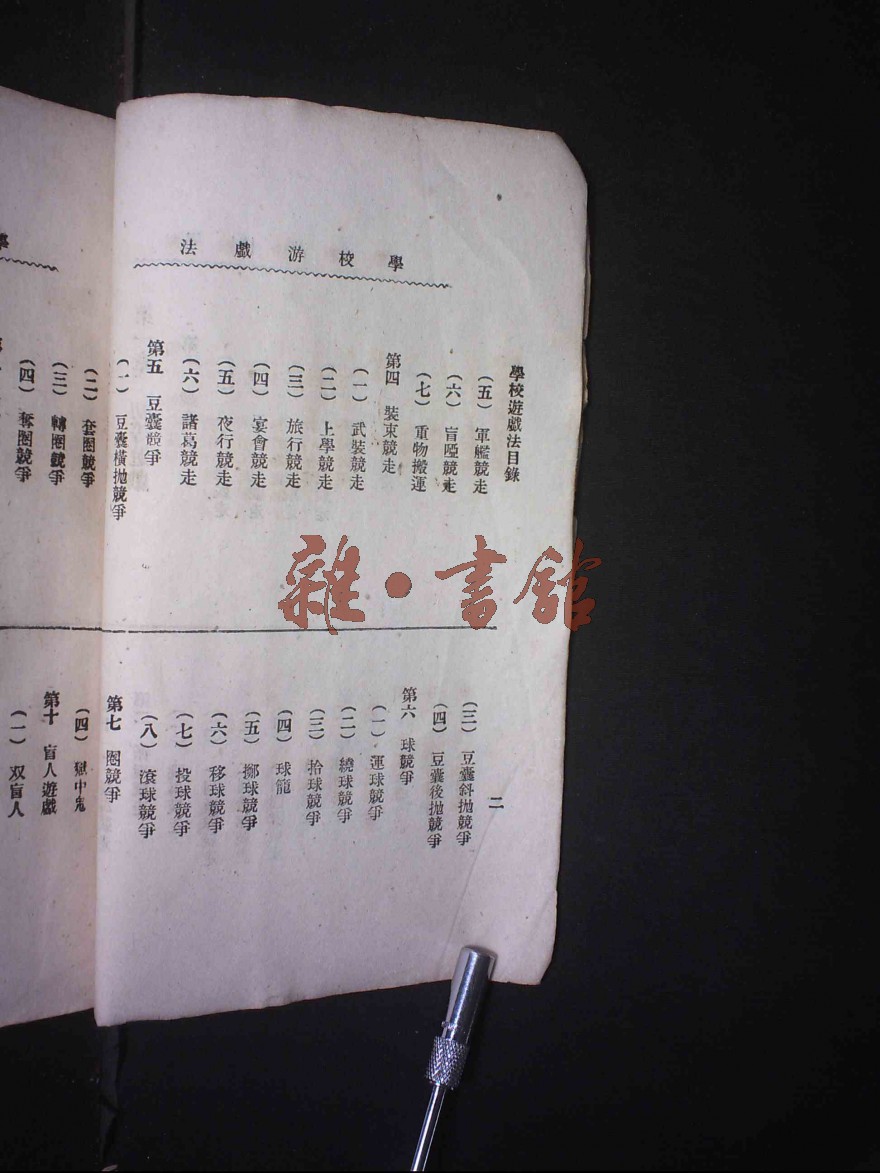 學校游戲法
學校遊戲法目錄
(五) 軍艦競走
(六) 盲啞競走
(七) 重物搬運
第四 裝束競走
(一) 武裝競走
(二) 上學競走
(三) 旅行競走
(四) 宴會競走
(五) 夜行競走
(六) 諸葛競走
第五 豆囊競爭
(一) 豆囊橫拋競爭
二
(三) 豆囊斜拋競爭
(四) 豆囊後拋競爭
第六 球競爭
(一) 運球競爭
(二) 繞球競爭
(三) 拾球競爭
(四) 球籠
(五) 擲球競爭
(六) 移球競爭
(七) 投球競爭
(八) 滾球競爭
第七 圈競爭
學
(二) 套圈競爭
(三) 轉圈競爭
(四) 奪圈競爭
(四) 獄中鬼
第十 盲人遊戲
(一) 双盲人
雜·書館